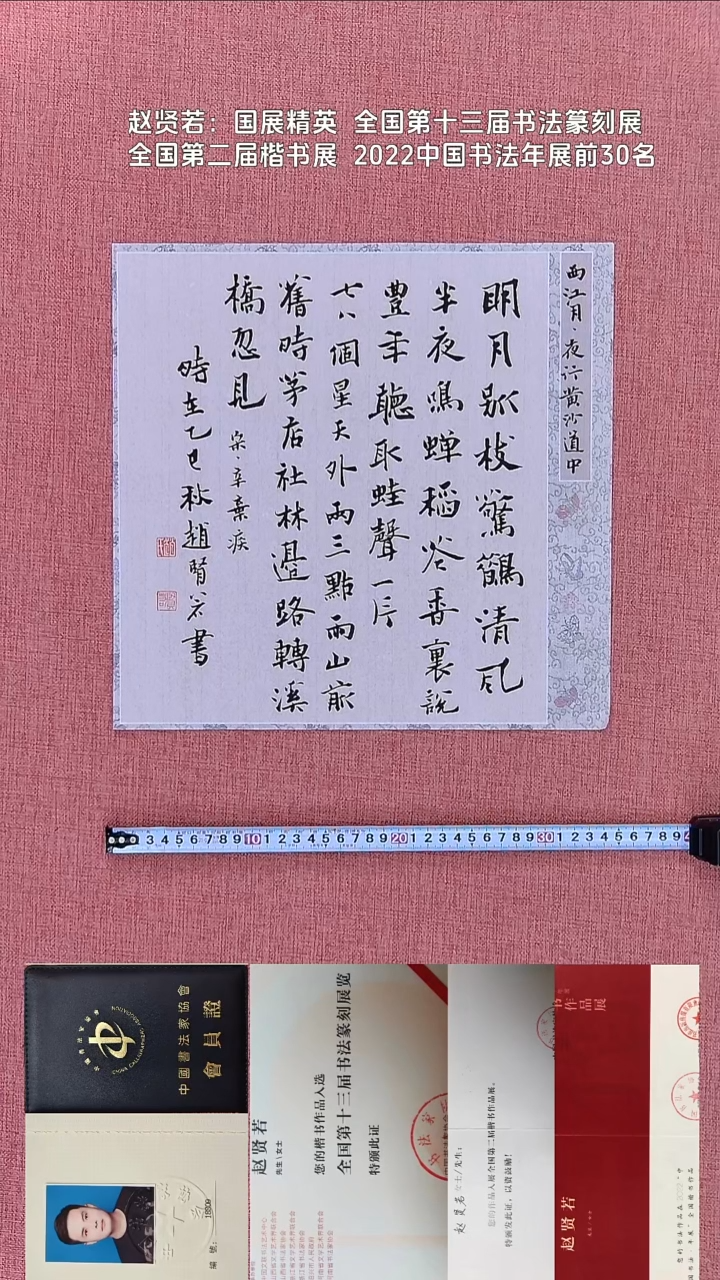 赵贤若：国展精英 全国第十三届书法篆刻展
全国第二届楷书展 2022中国书法年展前30名
西江月·夜行黄沙道中
明月别枝驚鵲清风
半夜鳴蟬稻谷香裏説
豊年聽取蛙聲一片
七八個星天外兩三點雨山前
舊時茅店社林邊路轉溪
橋忽見 宋·辛棄疾
時在乙巳秋趙賢若書
3 4 5 6 7 8 9 10 1 2 3 4 5 6 7 8 9 20 1 2 3 4 5 6 7 8 9 30 1 2 3 4 5 6 7 8 9
CHINA CALLIGRAPHERS ASSOCIATION
中國書法家協會
會員證
編號：
赵贤若
先生\女士
您的楷书作品入选
全国第十三届书法篆刻展览
特颁此证
赵贤若 女士/先生：
您的作品入展全国第二届楷书作品展。
特颁发此证，以资鼓励！
作品展
赵贤若